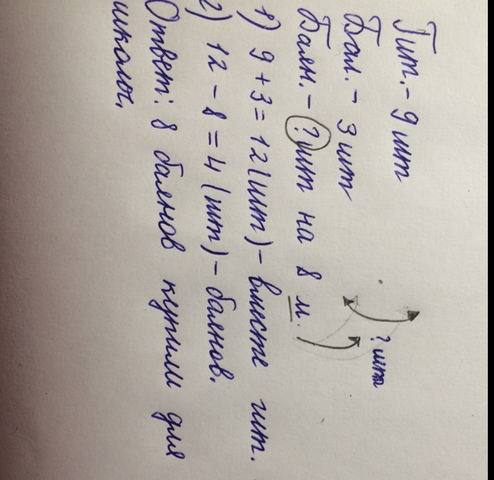 Гит. - 9 шт
Бал. - 3 шт
? шт
Баян. - ? шт на 8 м.
1) 9 + 3 = 12 (шт) - вместе гит.
2) 12 - 8 = 4 (шт) - баянов.
Ответ: 8 баянов купили для
школы.